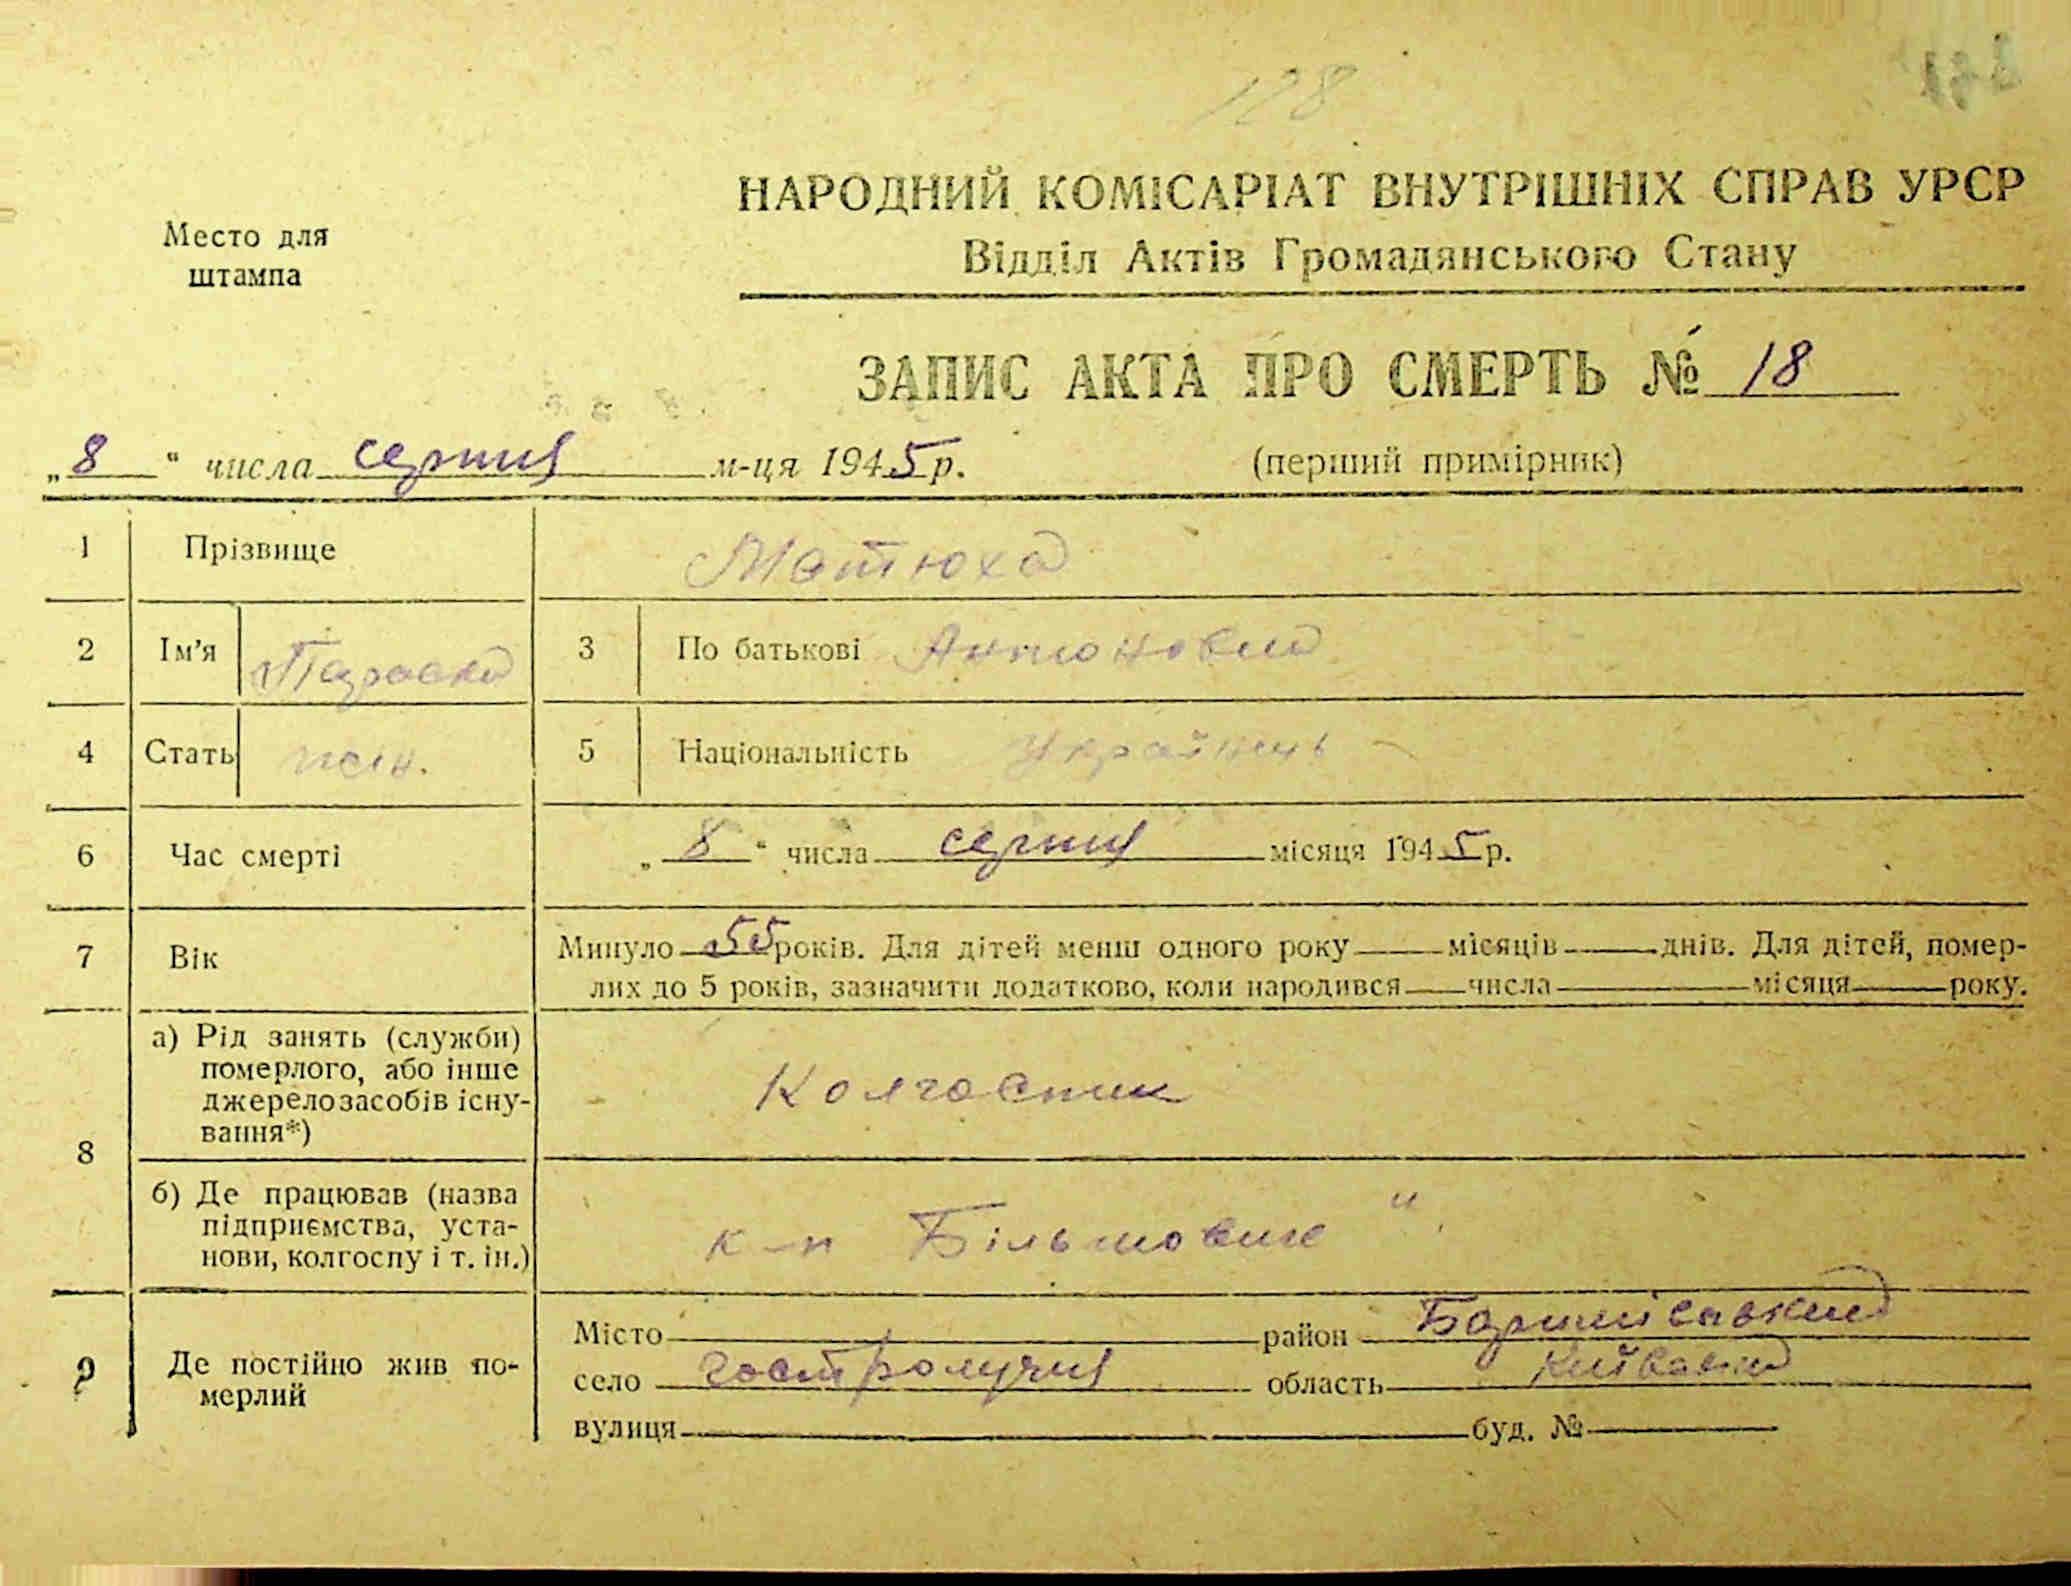 128
НАРОДНИЙ КОМІСАРІАТ ВНУТРІШНІХ СПРАВ УРСР
Место для
штампа
Відділ Актів Громадянського Стану
ЗАПИС АКТА ПРО СМЕРТЬ № 18
„8“ числа серпня м-ця 1945 р. (перший примірник)
1 Прізвище Матюха
2 Ім'я Параска 3 По батькові Антоновна
4 Стать жін. 5 Національність Українець
6 Час смерті „8“ числа серпня місяця 1945 р.
7 Вік Минуло 55 років. Для дітей менш одного року місяців днів. Для дітей, помер-
лих до 5 років, зазначити додатково, коли народився числа місяця року.
8 а) Рід занять (служби)
померлого, або інше
джерело засобів існу-
вання*)
Колгоспник
б) Де працював (назва
підприємства, уста-
нови, колгоспу і т. ін.)
к-п Більшовик"
9 Де постійно жив по-
мерлий
Місто район Баришівський
село Гостролуччя область Київська
вулиця буд. №